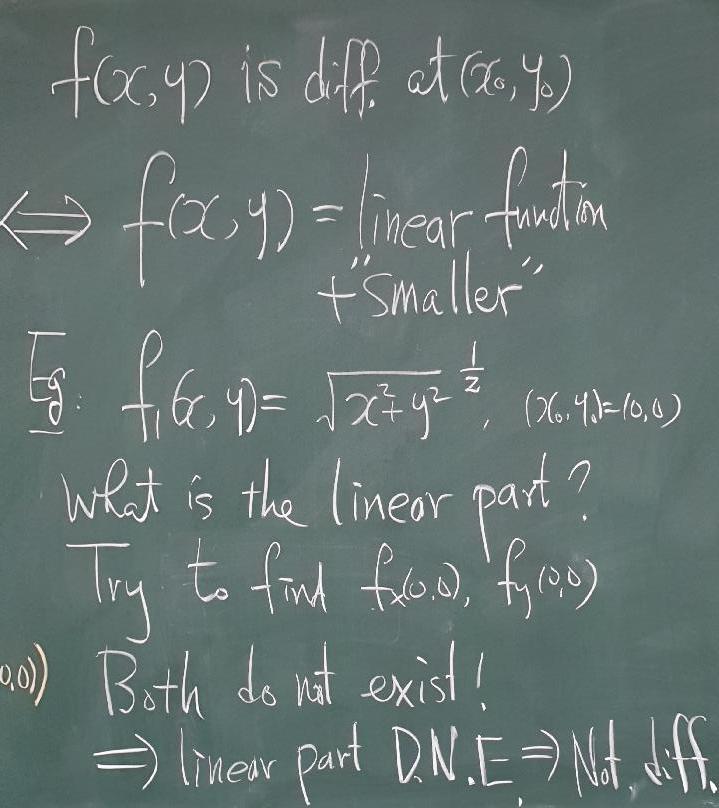 f(x,y) is diff. at (x₀,y₀)
⟺ f(x,y) = linear function
+ "smaller"
Eg: f₁(x,y) = √(x²+y²)^(1/2), (x₀,y₀)=(0,0)
What is the linear part?
Try to find fₓ(0,0), f_y(0,0)
0,0)) Both do not exist!
⟹ linear part D.N.E. ⟹ Not diff.